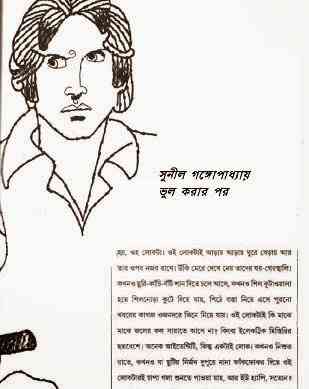 সুনীল গঙ্গোপাধ্যায়
ভুল করার পর
হ্যা, ওই লোকটা। ওই লোকটাই আড়ায় আড়ায় ঘুরে বেড়ায় আর
তার ওপর নজর রাখে। উঁকি মেরে দেখে নেয় তাদের ঘর-গেরস্থালি।
কখনও ছুরি-কাঁচি-বঁটি শান দিতে চলে আসে, কখনও শিল কুটাওয়ালা
হয়ে শিলনোড়া কুটে দিয়ে যায়, পিঠে বস্তা নিয়ে এসে পুরনো
খবরের কাগজ ওজনদরে কিনে নিয়ে যায়। ওই লোকটাই কি মাঝে
মাঝে জলের কল সারাতে আসে না? কিংবা ইলেকট্রিক মিস্তিরির
ছদ্মবেশে। অনেক আইডেন্টিটি, কিন্তু একটাই লোক। কখনও নিশুত
রাতে, কখনও বা ছুটির নির্জন দুপুরে নানা ফাঁকফোকর দিয়ে ওই
লোকটারই চাপা গলা শুনতে পাওয়া যায়, আর ইউ হ্যাপি, সহেন?